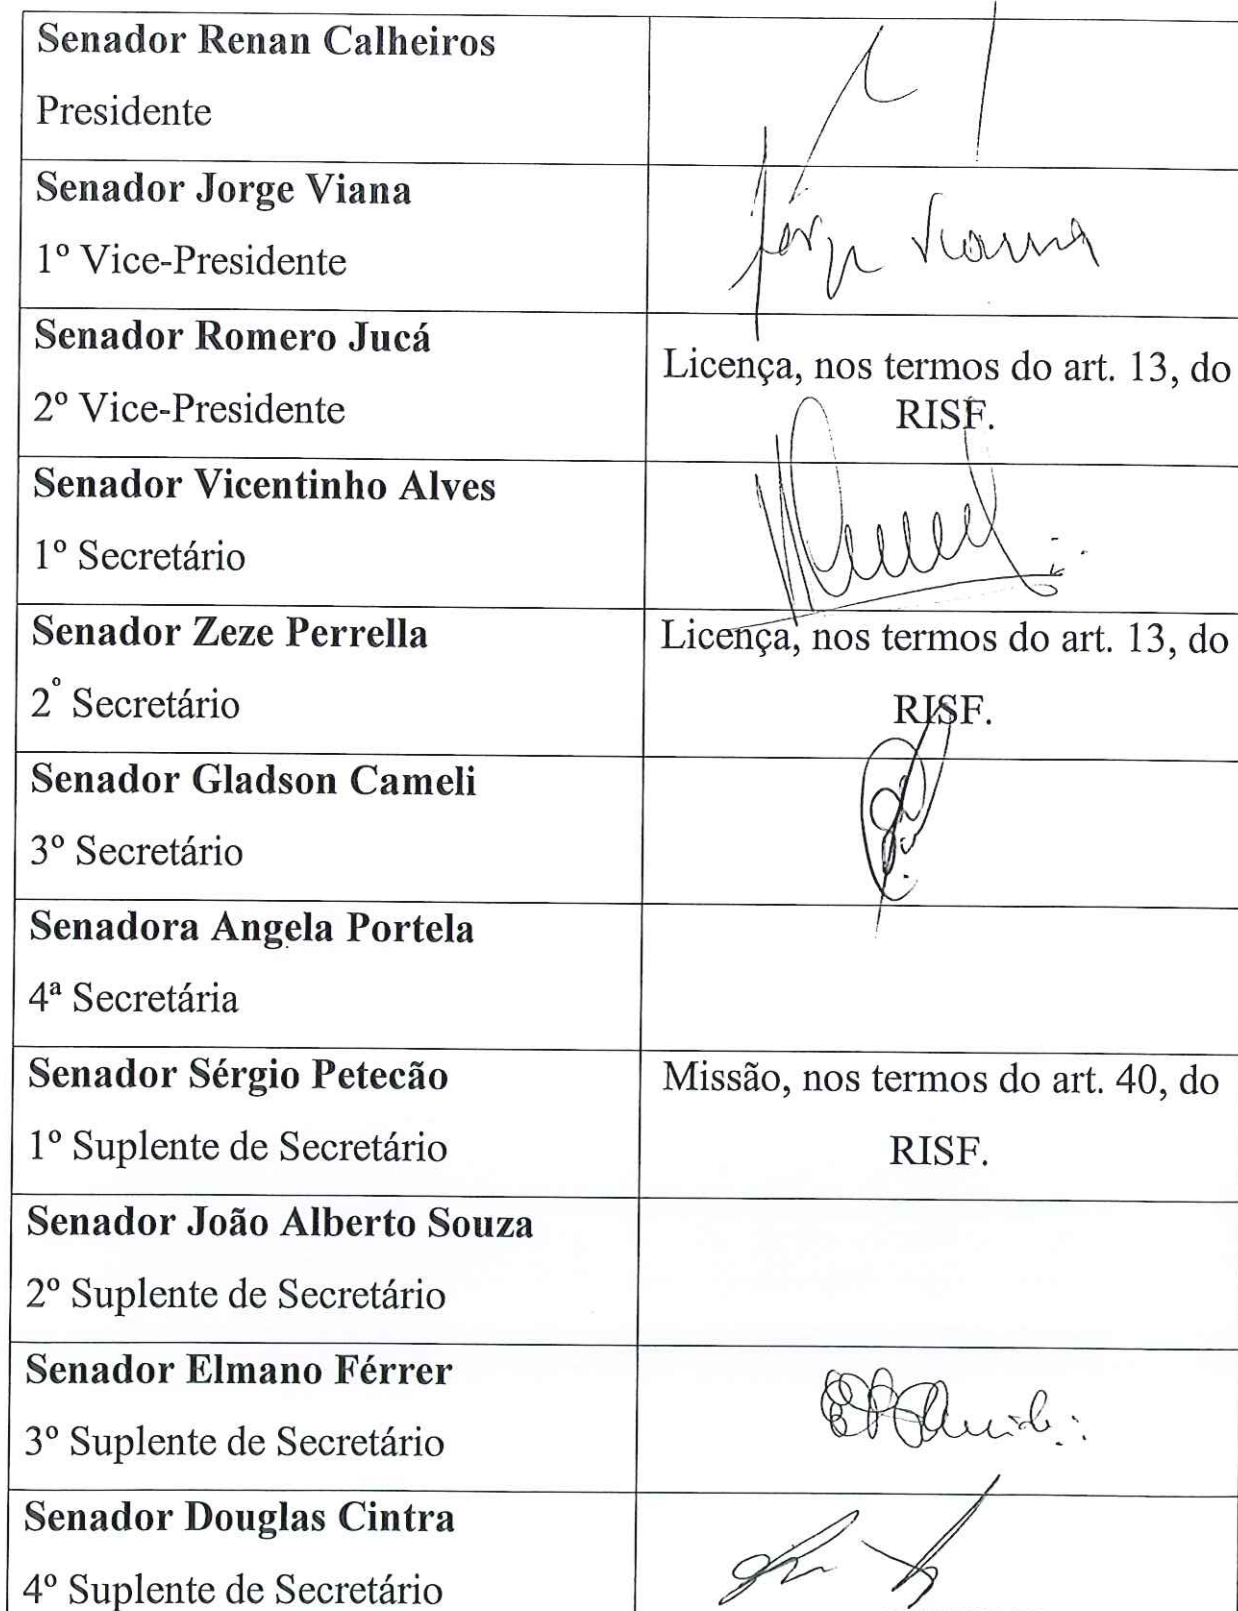 Senador Renan Calheiros
Presidente
Senador Jorge Viana
1º Vice-Presidente
Jorge Viana
Senador Romero Jucá
2º Vice-Presidente
Licença, nos termos do art. 13, do
RISF.
Senador Vicentinho Alves
1º Secretário
Senador Zeze Perrella
2º Secretário
Licença, nos termos do art. 13, do
RISF.
Senador Gladson Cameli
3º Secretário
Senadora Angela Portela
4ª Secretária
Senador Sérgio Petecão
1º Suplente de Secretário
Missão, nos termos do art. 40, do
RISF.
Senador João Alberto Souza
2º Suplente de Secretário
Senador Elmano Férrer
3º Suplente de Secretário
Senador Douglas Cintra
4º Suplente de Secretário